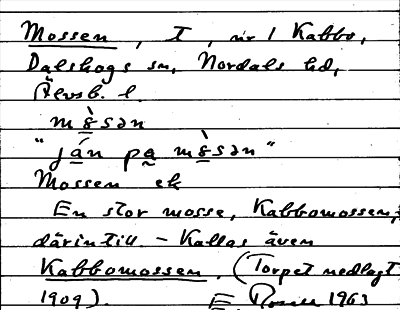 Mossen, T, nr 1 Kabbo,
Dalskogs sn, Nordals hd,
Älvsb. l.
mɞ̀sən
"ján pa mɞ̀sən"
Mossen ek
En stor mosse, Kabbomossen,
därintill. – Kallas även
Kabbomossen. (Torpet nedlagt
1909). 1963